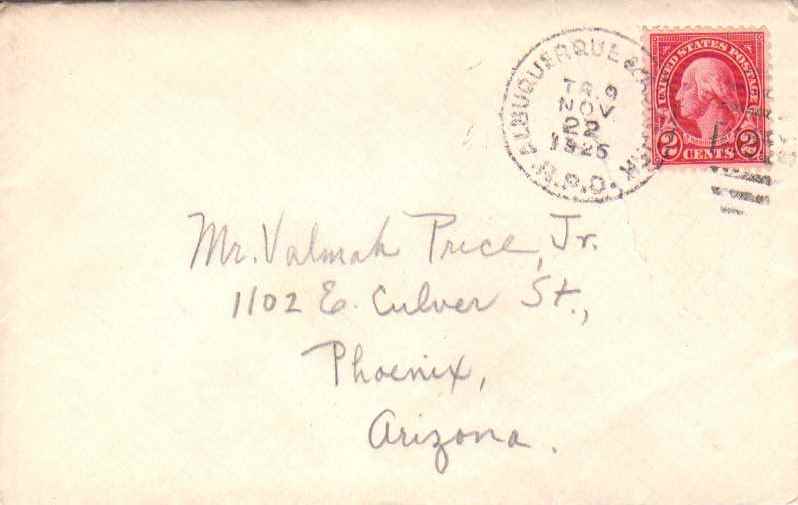 ALBUQUERQUE &
TR. 9
NOV
22
1925
R.P.O.
UNITED STATES POSTAGE
2 CENTS 2
Mr. Valmah Price, Jr.
1102 E. Culver St.,
Phoenix,
Arizona.